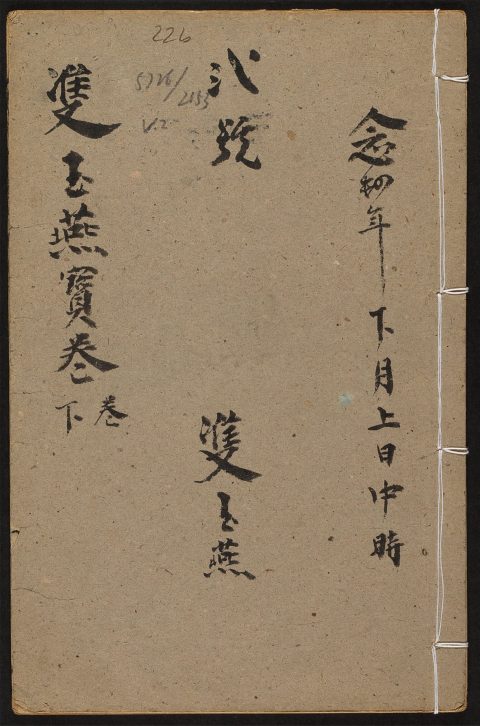 念四年下月上日中時
弍號
雙玉燕
雙玉燕寶卷
下卷
226
5726/2155
V.2